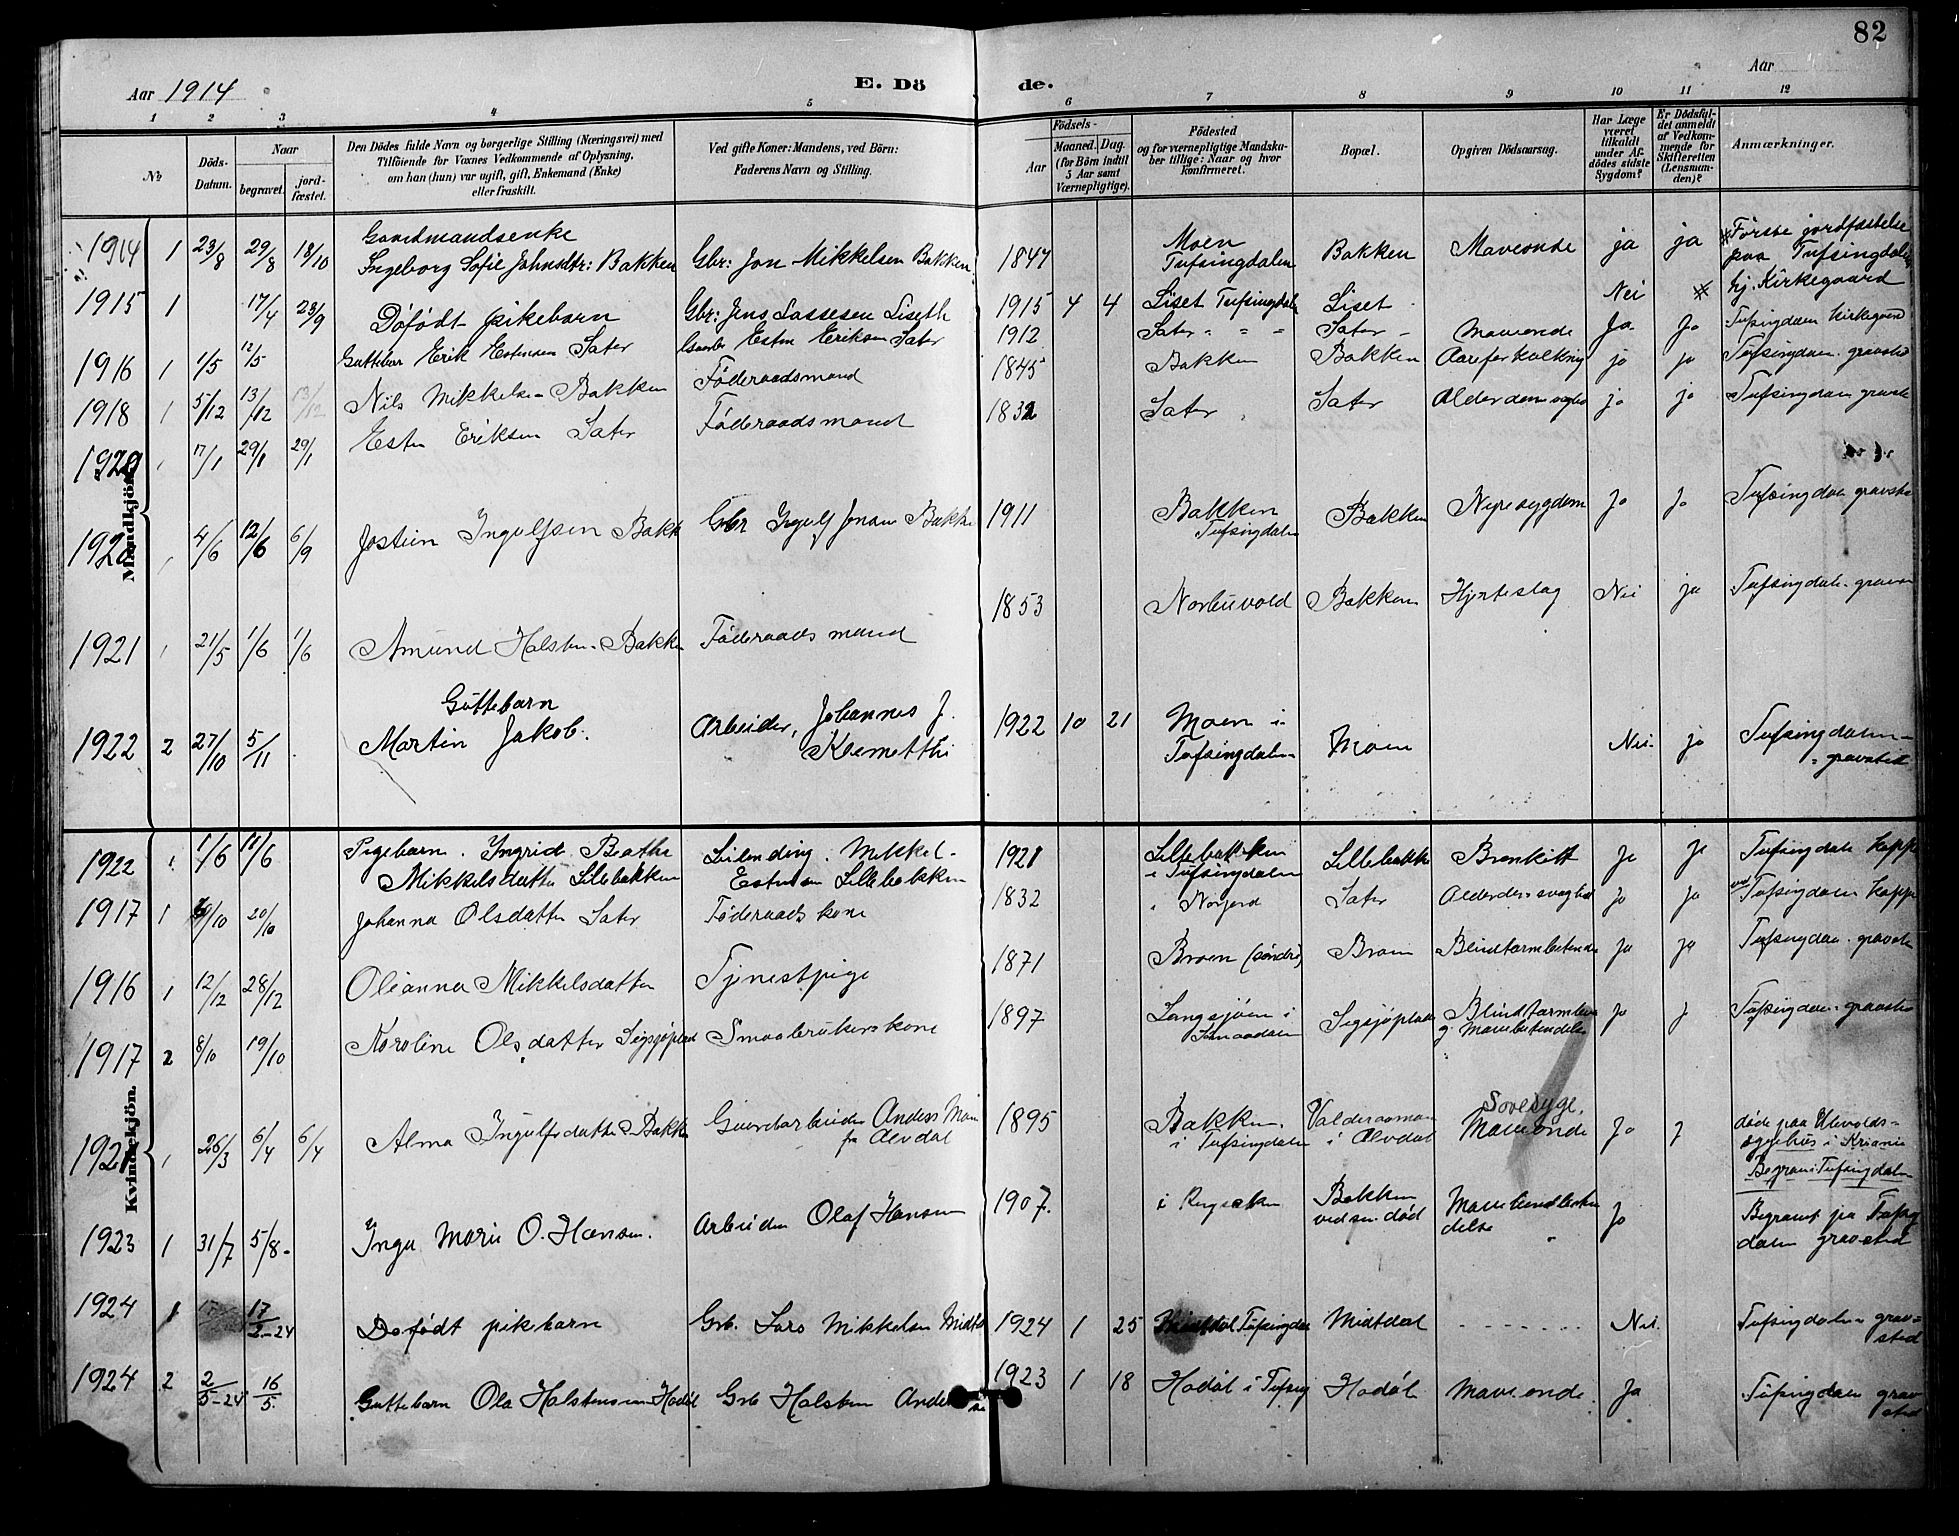 82
Aar 1914
E. Dö
de.
Aar
1 2 3 4 5 6 7 8 9 10 11 12
№
Döds-Datum.
Naar
begravet.
jord-fæstet.
Den Dödes fulde Navn og borgerlige Stilling (Næringsvei) med
Tilföiende for Voxnes Vedkommende af Oplysning,
om han (hun) var ugift, gift, Enkemand (Enke)
eller fraskilt.
Ved gifte Koner: Mandens, ved Börn:
Faderens Navn og Stilling.
Födsels-
Aar
Maaned. Dag.
(for Börn indtil
5 Aar samt
Værnepligtige).
Födested
og for værnepligtige Mandska-
ber tillige: Naar og hvor
konfirmeret.
Bopæl.
Opgiven Dödsaarsag.
Har Læge
været
tilkaldt
under Af-
dödes sidste
Sygdom?
Er Dödsfal-
det anmeldt
af Vedkom-
mende for
Skifteretten
(Lensman-
den)?
Anmærkninger.
Mandkjön.
1914 1 23/8 29/8 18/10 Gaardmandsenke
Ingeborg Sofie Johnsdtr: Bakken Gbr: Jon Mikkelsen Bakken 1847 Moen
Tufsingdalen Bakken Maveonde ja ja Første jordfæstelse
paa Tufsingdalen
hj. Kirkegaard
1915 1 17/4 23/9 Døfødt pikebarn Gbr: Jens Lassesen Liseth 1915 4 4 Liset Tufsingdaln Liset Nei
1916 1 1/5 12/5 Guttebar Erik Estensen Sater Gaardbr Esten Eriksen Sater 1912 Sater " " " Sater Maveonde Ja Ja Tufsingdalen Kirkegaard
1918 1 5/12 13/12 13/12 Nils Mikkelsen Bakken Føderaadsmand 1845 Bakken Bakken Aareforkalkning ja ja Tufsingdalen gravsted
1920 17/1 29/1 29/1 Esten Eriksen Sater Føderaadsmand 1832 Sater Sater Alderdomssvaghed ja ja Tufsingdalen gravste
1920 4/6 12/6 6/9 Jostein Ingulfsen Bakk Gbr Ingulf Jonsen Bakke 1911 Bakken
Tufsingdalen Bakken Nyresygdom Ja Ja Tufsingdalen gravste
1921 21/5 1/6 1/6 Amund Halsten Bakken Føderaadsmand 1853 Narbuvold Bakken Hjerteslag Nei ja Tufsingdalen gravs
1922 2 27/10 5/11 Guttebarn
Martin Jakob. Arbeider, Johannes J.
1922 10 21 Moen i
Tufsingdalen Moen Nei. ja Tufsingdalen
gravsted
Kvindekjön.
1922 1/6 11/6 Pigebarn. Ingrid Beathe
Mikkelsdatter Lillebakken Leilending. Mikkel
Estensen Lillebakken 1921 Lillebakken
i Tufsingdalen Lillebakke Bronkitt Ja Ja Tufsingdalen Kappe
1917 1 /10 20/10 Johanna Olsdatter Sater Føderaadskone 1832 i Norjord Sater Alderdomssvaghed Ja Ja ved Tufsingdalen Kappe
1916 1 12/12 28/12 Olianna Mikkelsdatter Tjenestpige 1871 Broen (søndre) Broen Blindtarmbetende Ja Ja Tufsingdalen gravste
1917 2 8/10 19/10 Karoline Olsdatter Sigsjøplad Smaabrukerskone 1897 Langsjøen i
Sigsjøplad Blindtarmbe
g. Mavebetendelse Ja J Tufsingdalen gravste
1921 26/3 6/4 6/4 Alma Ingulfsdatter Bakke Gaardarbeider Anders Moen
fra Alvdal 1895 Bakken
i Tufsingdalen i Alvdal Sovesyge,
Maveonde Ja J døde paa Ulevolds-
sygehus i Kriania
Begravet i Tufsingdalen
1923 1 31/7 5/8 Inga Marie O. Hansen. Arbeider Olaf Hansen 1907. i Bakken
ved sin død Ja Begravet på Tufsing
dalen gravsted
1924 1 17/2-24 Dofødt pikebarn Grb. Lars Mikkelsen Midtd 1924 1 25 Midtdal Tufsingdal Midtdal - - - - - - - Nei. Tufsingdalen grav=
sted
1924 2 2/5-24 16/5 Guttebarn Ola Halstensen Hodøl Grb Halsten Anders 1923 1 18 Hodøl i Tufsing Hodøl Maveonde Ja Tufsingdalen grav
sted